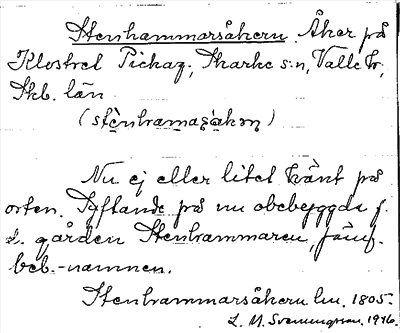 Stenhammarsåkern. Åker på
Klostret Pickag., Skarke s:n, Valle hr,
Skb. län
(stènhamaṣåkəṇ)
Nu ej eller litet känt på
orten. Syftande på nu obebyggda f.
d. gården Stenhammaren, jämf.
beb.-namnen.
Stenhammarsåkern lm. 1805.
L. M. Svenungsson. 1916.